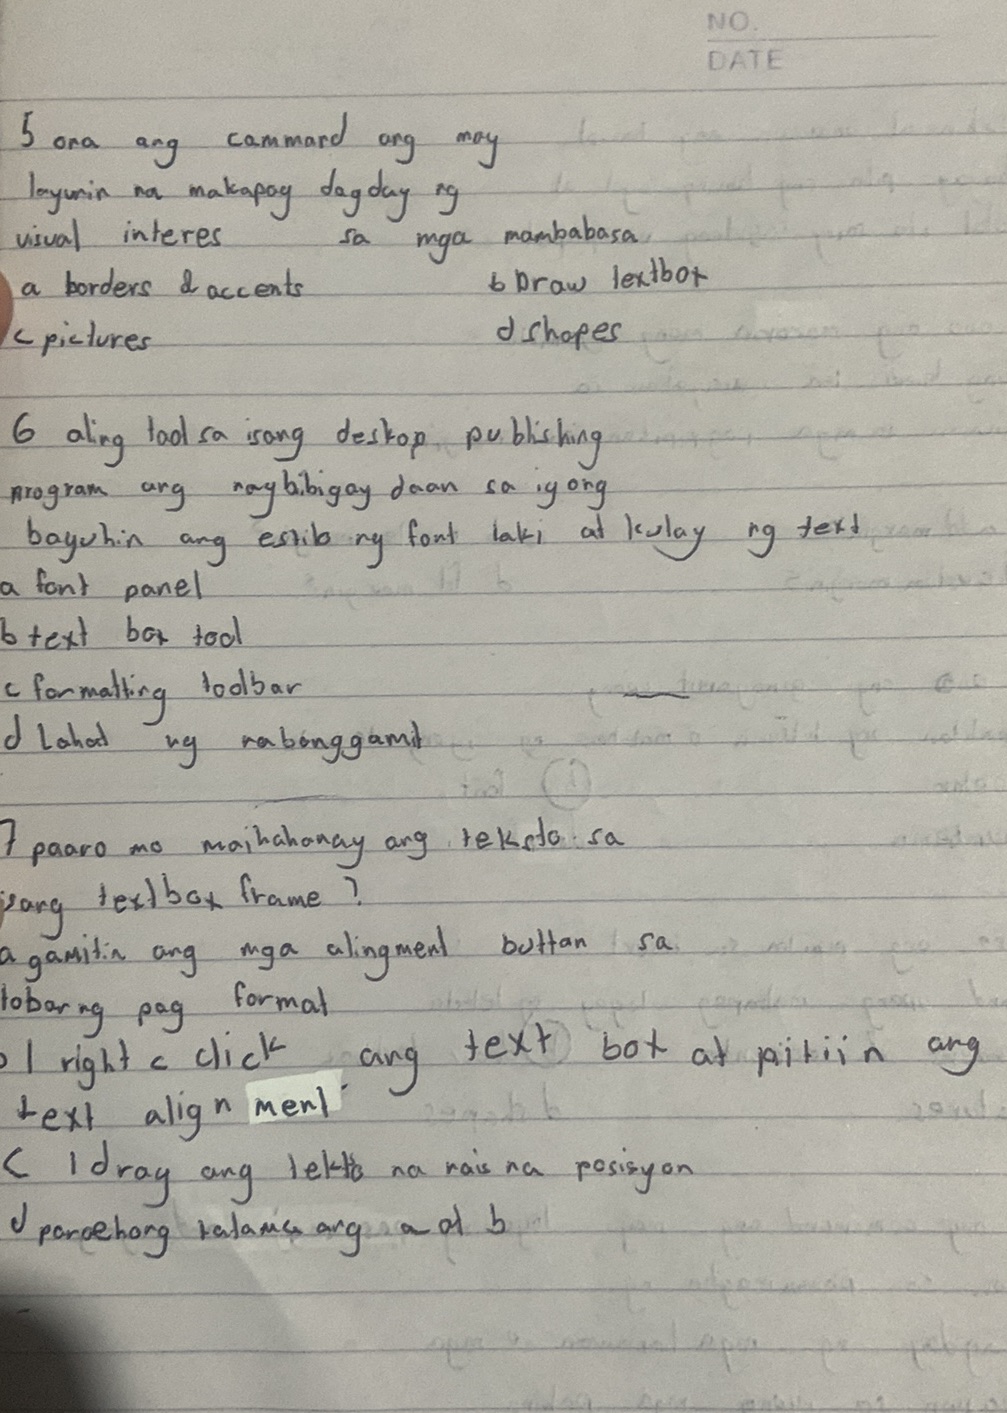 NO.
DATE
5 ona ang cammand ang may
layunin na makapag dagday ng
visual interes sa mga mambabasa
a borders & accents b Draw textbox
c pictures d shapes
6 aling tool sa isang deskop publishing
program ang nagbibigay daan sa iyong
baguhin ang estilo ng font laki at kulay ng text
a font panel
b text box tool
c formatting toolbar
d Lahat ng nabanggamit
7 paano mo maihahanay ang teksto sa
isang textbox frame ?
a gamitin ang mga alingment buttan sa
tobar ng pag format
b I right c click ang text box at piliin ang
text alignment
c I drag ang teksto na nais na posisyon
d parehong talama ang a at b